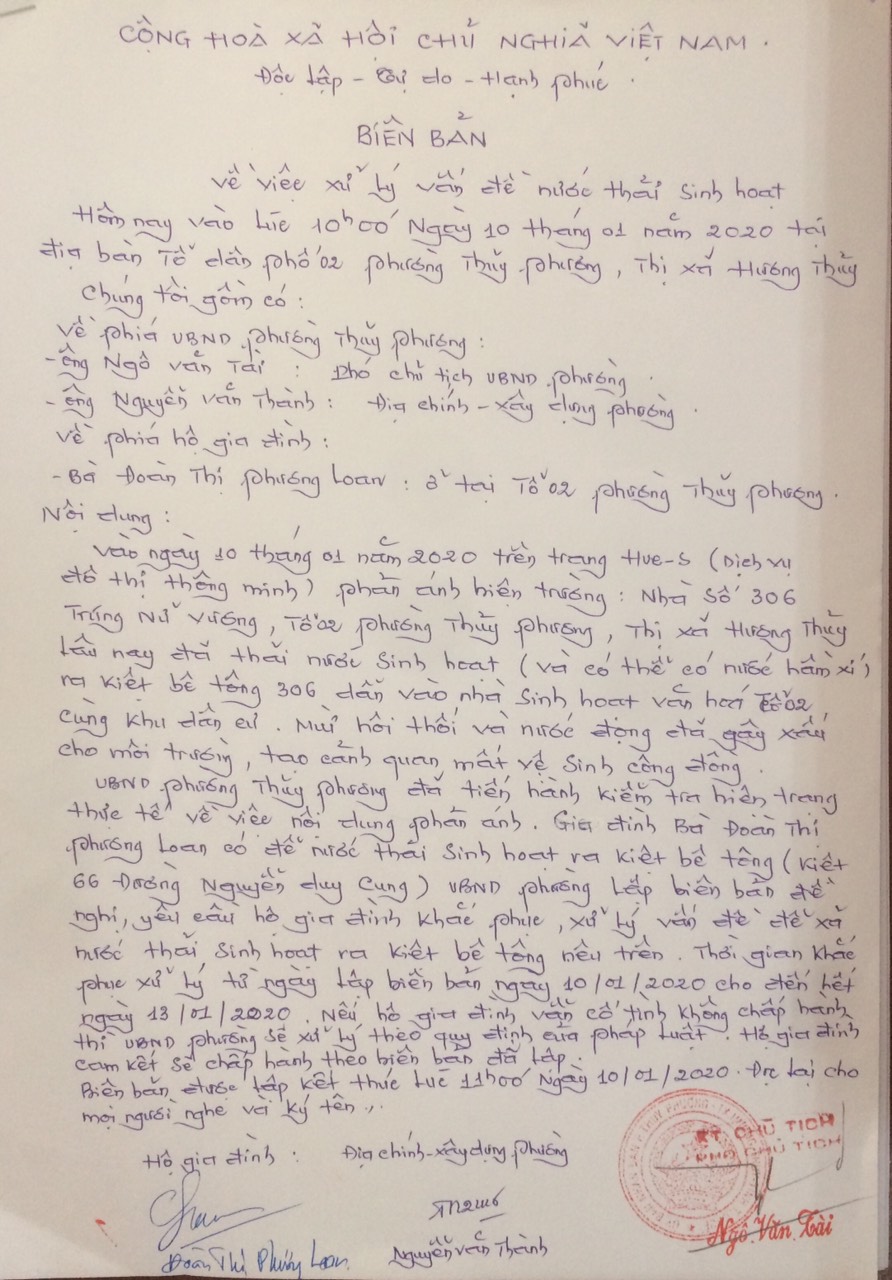 CỘNG HOÀ XÃ HỘI CHỦ NGHĨA VIỆT NAM.
Độc lập - Tự do - Hạnh phúc.
BIÊN BẢN
Về việc xử lý vấn đề nước thải sinh hoạt
Hôm nay vào lúc 10h00 Ngày 10 tháng 01 năm 2020 tại
địa bàn Tổ dân phố 02 phường Thủy phương, Thị xã Hương Thủy
Chúng tôi gồm có:
Về phía UBND phường Thủy phương:
- ông Ngô Văn Tài : Phó chủ tịch UBND phường.
- ông Nguyễn Văn Thành : Địa chính - xây dựng phường.
Về phía hộ gia đình:
- Bà Đoàn Thị Phương Loan : ở tại Tổ 02 phường Thủy phương.
Nội dung:
Vào ngày 10 tháng 01 năm 2020 trên trang Hue-S (Dịch vụ
đô thị thông minh) phản ánh hiện trường: Nhà số 306
Trưng Nữ Vương, Tổ 02 phường Thủy phương, Thị xã Hương Thủy
lâu nay đã thải nước sinh hoạt (và có thể có nước hầm xí)
ra kiệt bê tông 306 dẫn vào nhà sinh hoạt văn hoá Tổ 02,
cùng khu dân cư. Mùi hôi thối và nước đọng đã gây xấu
cho môi trường, tạo cảnh quan mất vệ sinh công đồng.
UBND phường Thủy phương đã tiến hành kiểm tra hiện trạng
thực tế về việc nội dung phản ánh. Gia đình Bà Đoàn Thị
Phương Loan có để nước thải sinh hoạt ra kiệt bê tông (kiệt
66 Đường Nguyễn duy Cung) UBND phường lập biên bản đề
nghị, yêu cầu hộ gia đình khắc phục, xử lý vấn đề để xả
nước thải sinh hoạt ra kiệt bê tông nêu trên. Thời gian khắc
phục xử lý từ ngày lập biên bản ngày 10/01/2020 cho đến hết
ngày 13/01/2020. Nếu hộ gia đình vẫn cố tình không chấp hành
thì UBND phường sẽ xử lý theo quy định của pháp luật. Hộ gia đình
cam kết sẽ chấp hành theo biên bản đã lập.
Biên bản được lập kết thúc lúc 11h00 Ngày 10/01/2020. Đọc lại cho
mọi người nghe và ký tên./.
Hộ gia đình : Địa chính-xây dựng phường
KT. CHỦ TỊCH
PHÓ CHỦ TỊCH
Đoàn Thị Phương Loan
Nguyễn Văn Thành
Ngô Văn Tài